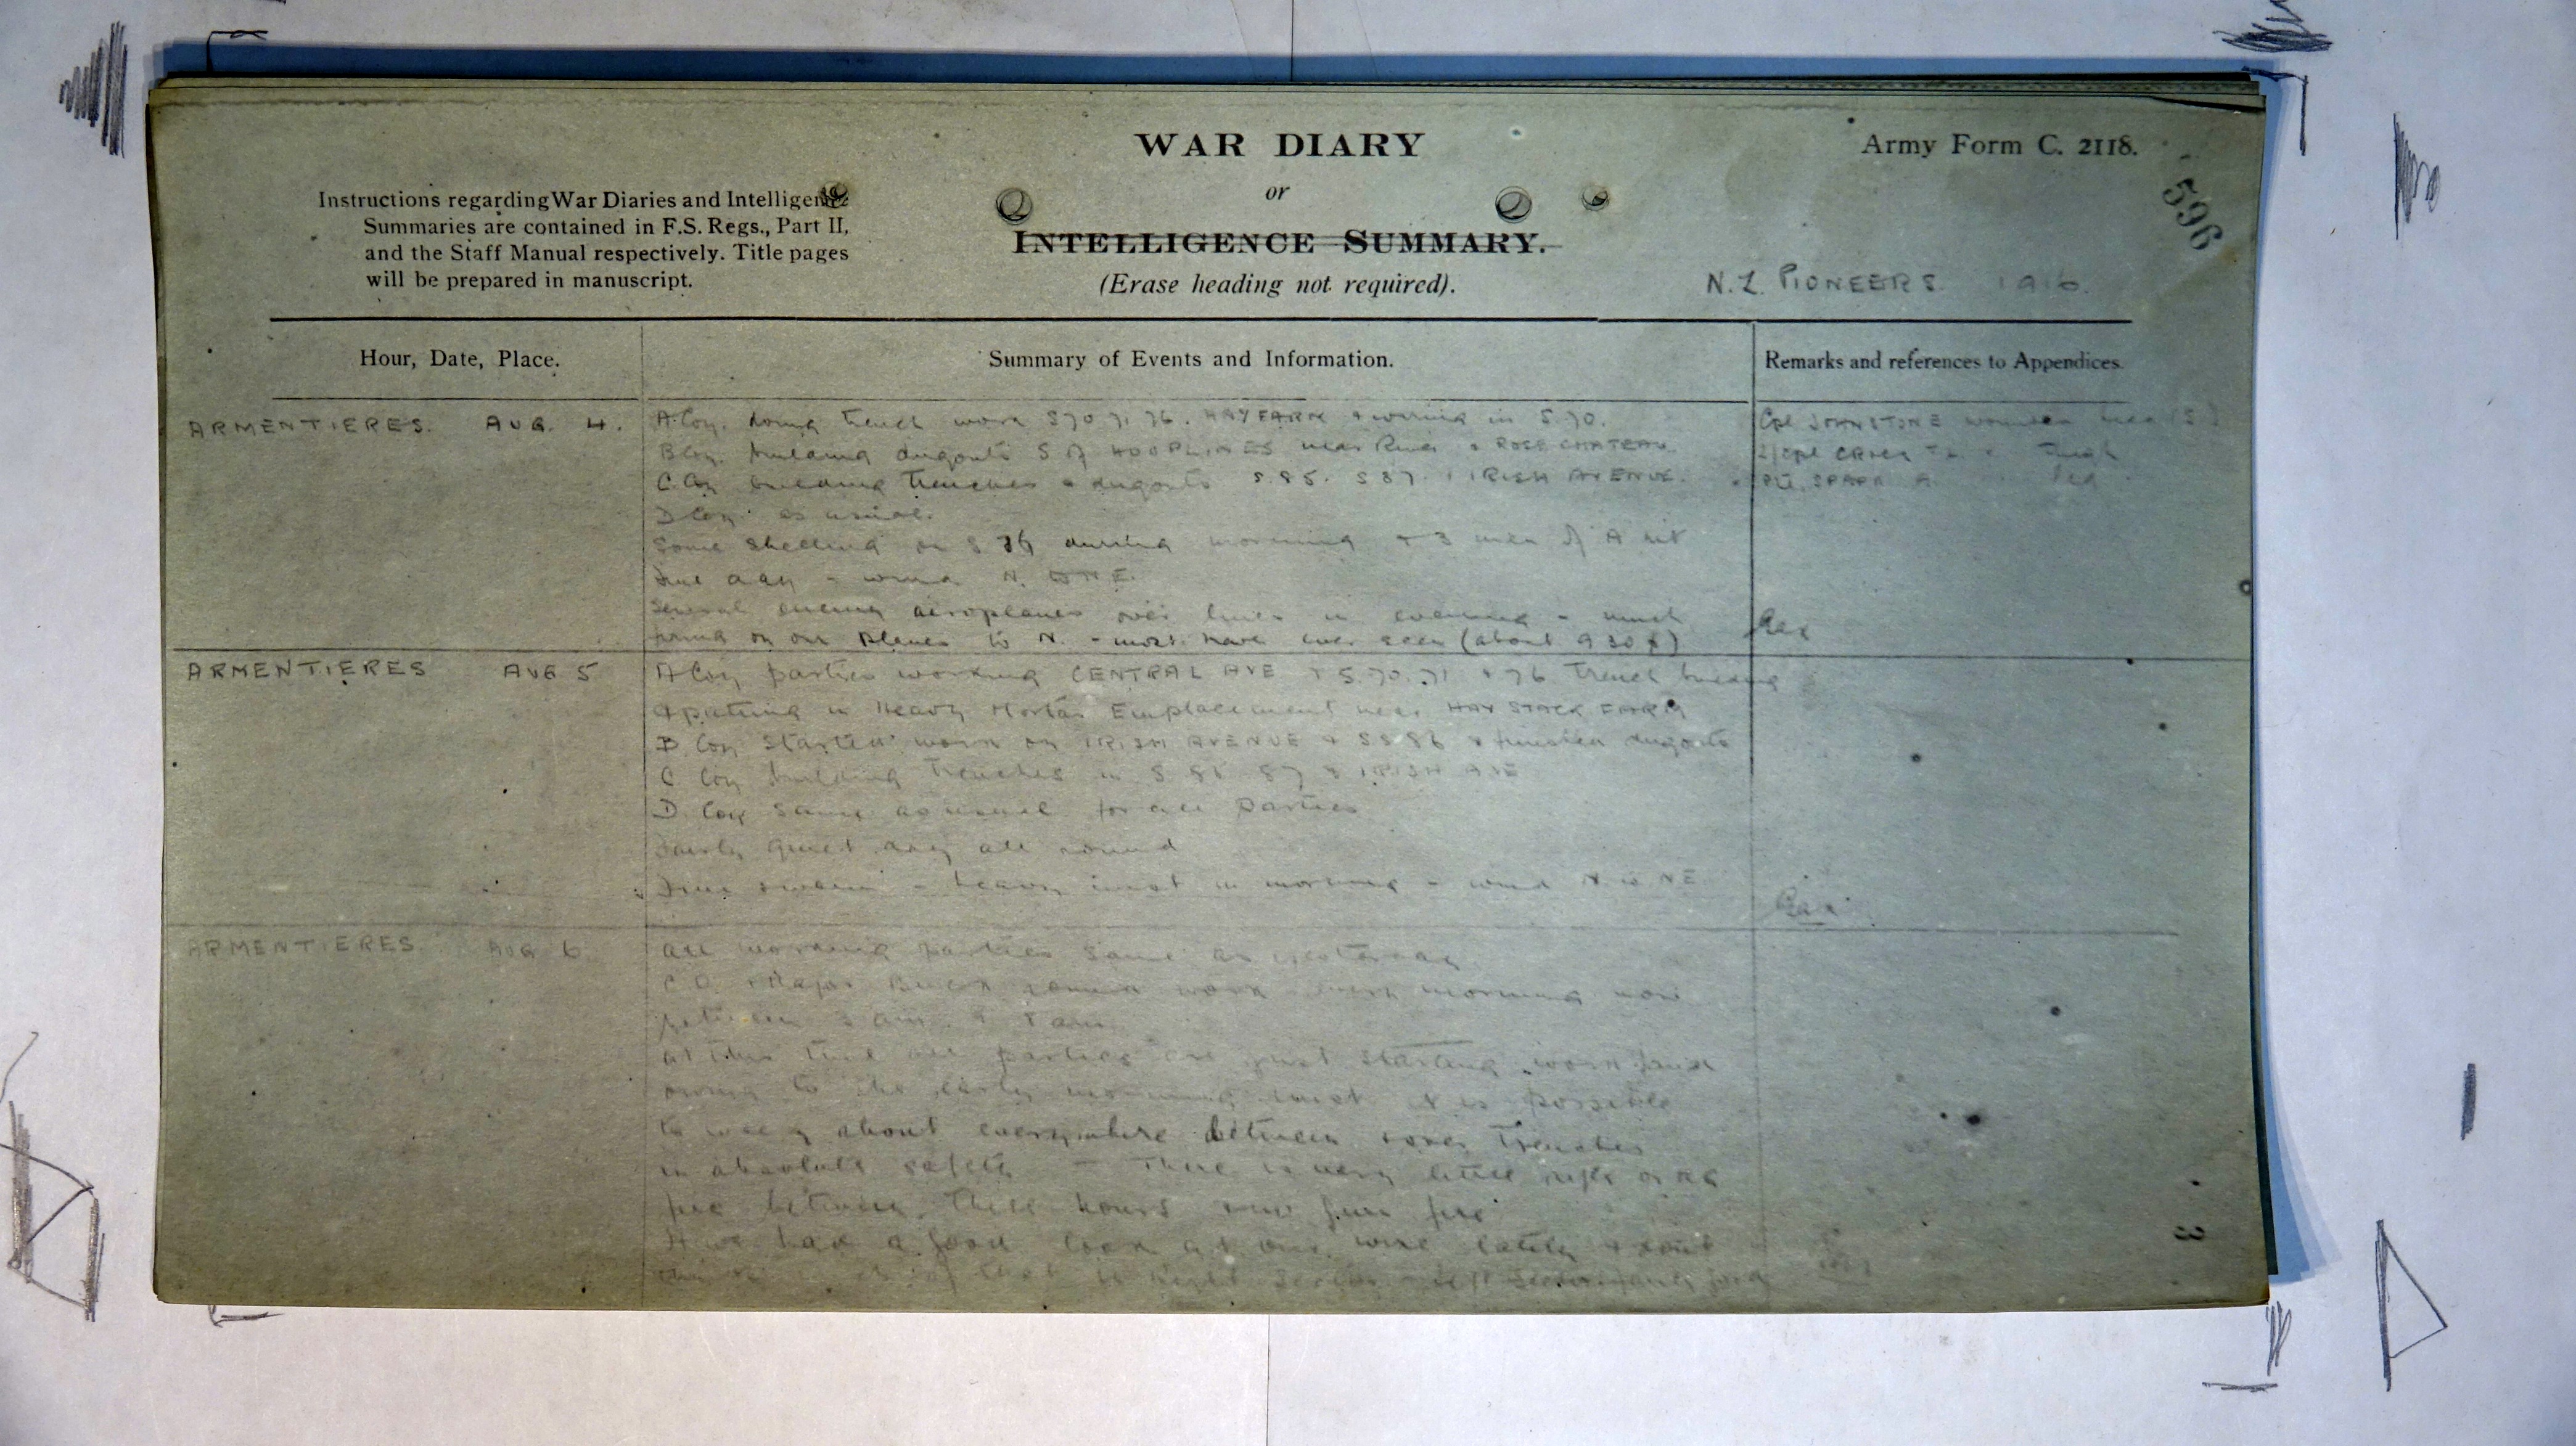 WAR DIARY
or
INTELLIGENCE SUMMARY.
(Erase heading not required).
Army Form C. 2118.
596
Instructions regarding War Diaries and Intelligence
Summaries are contained in F.S. Regs., Part II,
and the Staff Manual respectively. Title pages
will be prepared in manuscript.
N.Z. PIONEERS. 1916.
Hour, Date, Place.
Summary of Events and Information.
Remarks and references to Appendices.
ARMENTIERES. AUG. 4.
A Coy. doing trench work S70 71 76. HAY FARM & wiring in S.70.
B Coy. building dugouts S of HOUPLINES near River & ROSE CHATEAU.
C. Coy building trenches & dugouts S.85. S87. IRISH AVENUE.
D Coy. as usual.
Some shelling on S 76 during morning & 3 men of A hit
Fine day - wind N. NE.
Several enemy aeroplanes over lines in evening - much
firing on our planes to N. - most have ever seen (about 9 30 p)
Cpl JOHNSTONE wounded
L/Cpl Thigh
Pte. A. leg
ARMENTIERES AUG 5
A Coy parties working CENTRAL AVE & S.70.71 & 76 trench building
& putting in Heavy Mortar Emplacement near HAYSTACK FARM
B Coy started work on IRISH AVENUE & SS 86 & finished dugouts
C Coy building trenches in S 86 87 & IRISH AVE
D. Coy same as usual for all parties
Fairly quiet day all round
Fine - heavy mist in morning - wind N to NE.
ARMENTIERES. AUG 6
All working parties same as yesterday.
C.O. & Major BUCK round work every morning now
between 3 am. & 8 am.
At this time all parties are just starting work and
owing to the early morning mist it is possible
to walk about everywhere between & over trenches
in absolute safety - There is very little rifle or MG
fire between these hours & no gun fire
Have had a good look at our wire lately & don't
that in Right Sector - left Sector fairly good